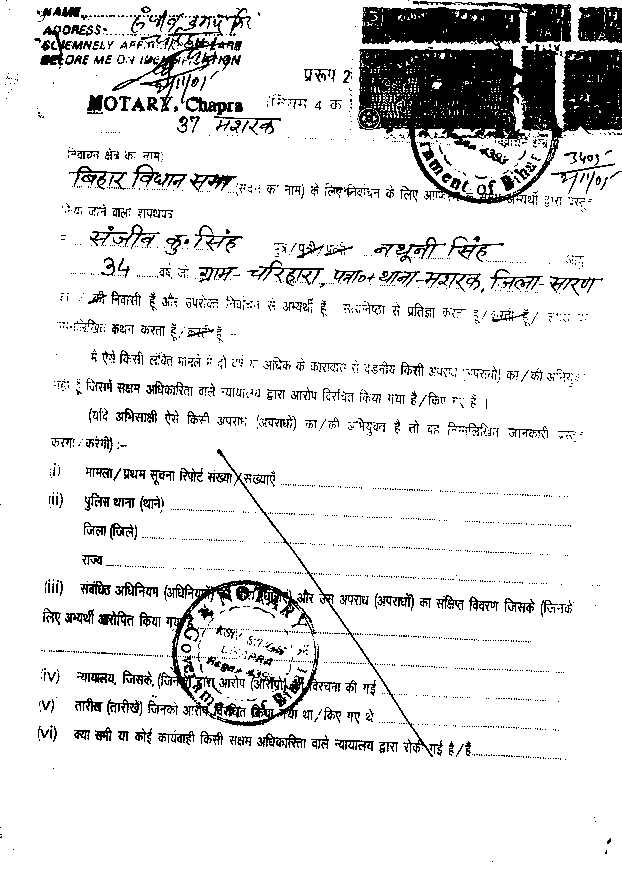 NAME
ADDRESS-
SOLEMNELY AFF
BEFORE ME ON
NOTARY, Chapra
प्ररूप 2
(नियम 4 क
37 मशरक
निर्वाचन क्षेत्र का नाम)
3405
2/11/05
बिहार विधान सभा (सदन का नाम) के लिए निर्वाचन के लिए अभ्यर्थी द्वारा प्रस्तुत
किया जाने वाला शपथपत्र
संजीव कु. सिंह पुत्र/पुत्री/पत्नी नथूनी सिंह आयु
34 वर्ष, जो ग्राम- चरिहारा, पत्रा०+थाना-मशरक, जिला-सारण
का/की निवासी हूँ और उपरोक्त निर्वाचन से अभ्यर्थी हूँ सत्यनिष्ठा से प्रतिज्ञा करता हूँ/करती हूँ/
निम्नलिखित कथन करता हूँ/करती हूँ :-
मैं ऐसे किसी लंबित मामले में दो वर्ष या अधिक के कारावास से दंडनीय किसी अपराध (अपराधों) का/की अभियुक्त
नहीं हूँ जिसमें सक्षम अधिकारिता वाले न्यायालय द्वारा आरोप विरचित किया गया है/किए गए हैं ।
(यदि अभिसाक्षी ऐसे किसी अपराध (अपराधों) का/की अभियुक्त है तो वह निम्नलिखित जानकारी प्रस्तुत
करेगा/करेगी) :-
(i) मामला/प्रथम सूचना रिपोर्ट संख्या/संख्याएँ
(ii) पुलिस थाना (थाने)
जिला (जिले)
राज्य
(iii) संबंधित अधिनियम (अधिनियमों) और उस अपराध (अपराधों) का संक्षिप्त विवरण जिसके (जिनके
लिए अभ्यर्थी आरोपित किया गया
NOTARY
CHAPRA
Government of Bihar
(iv) न्यायालय, जिसके, (जिनके) द्वारा आरोप (आरोपों) की विरचना की गई
(v) तारीख (तारीखें) जिनको आरोप विरचित किया गया था/किए गए थे
(vi) क्या सभी या कोई कार्यवाही किसी सक्षम अधिकारिता वाले न्यायालय द्वारा रोकी गई है/हैं